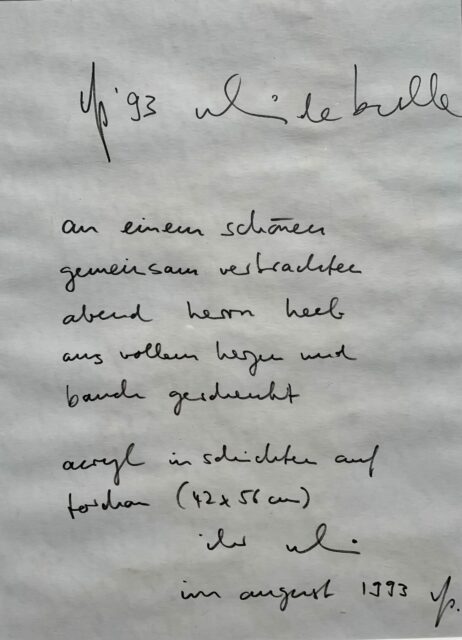 '93 uli
an einem schönen
gemeinsam verbrachten
abend herrn heeb
aus vollem herzen und
bauch geschenkt
acryl in schichten auf
torchon (42 x 56 cm)
ihr uli
im august 1993